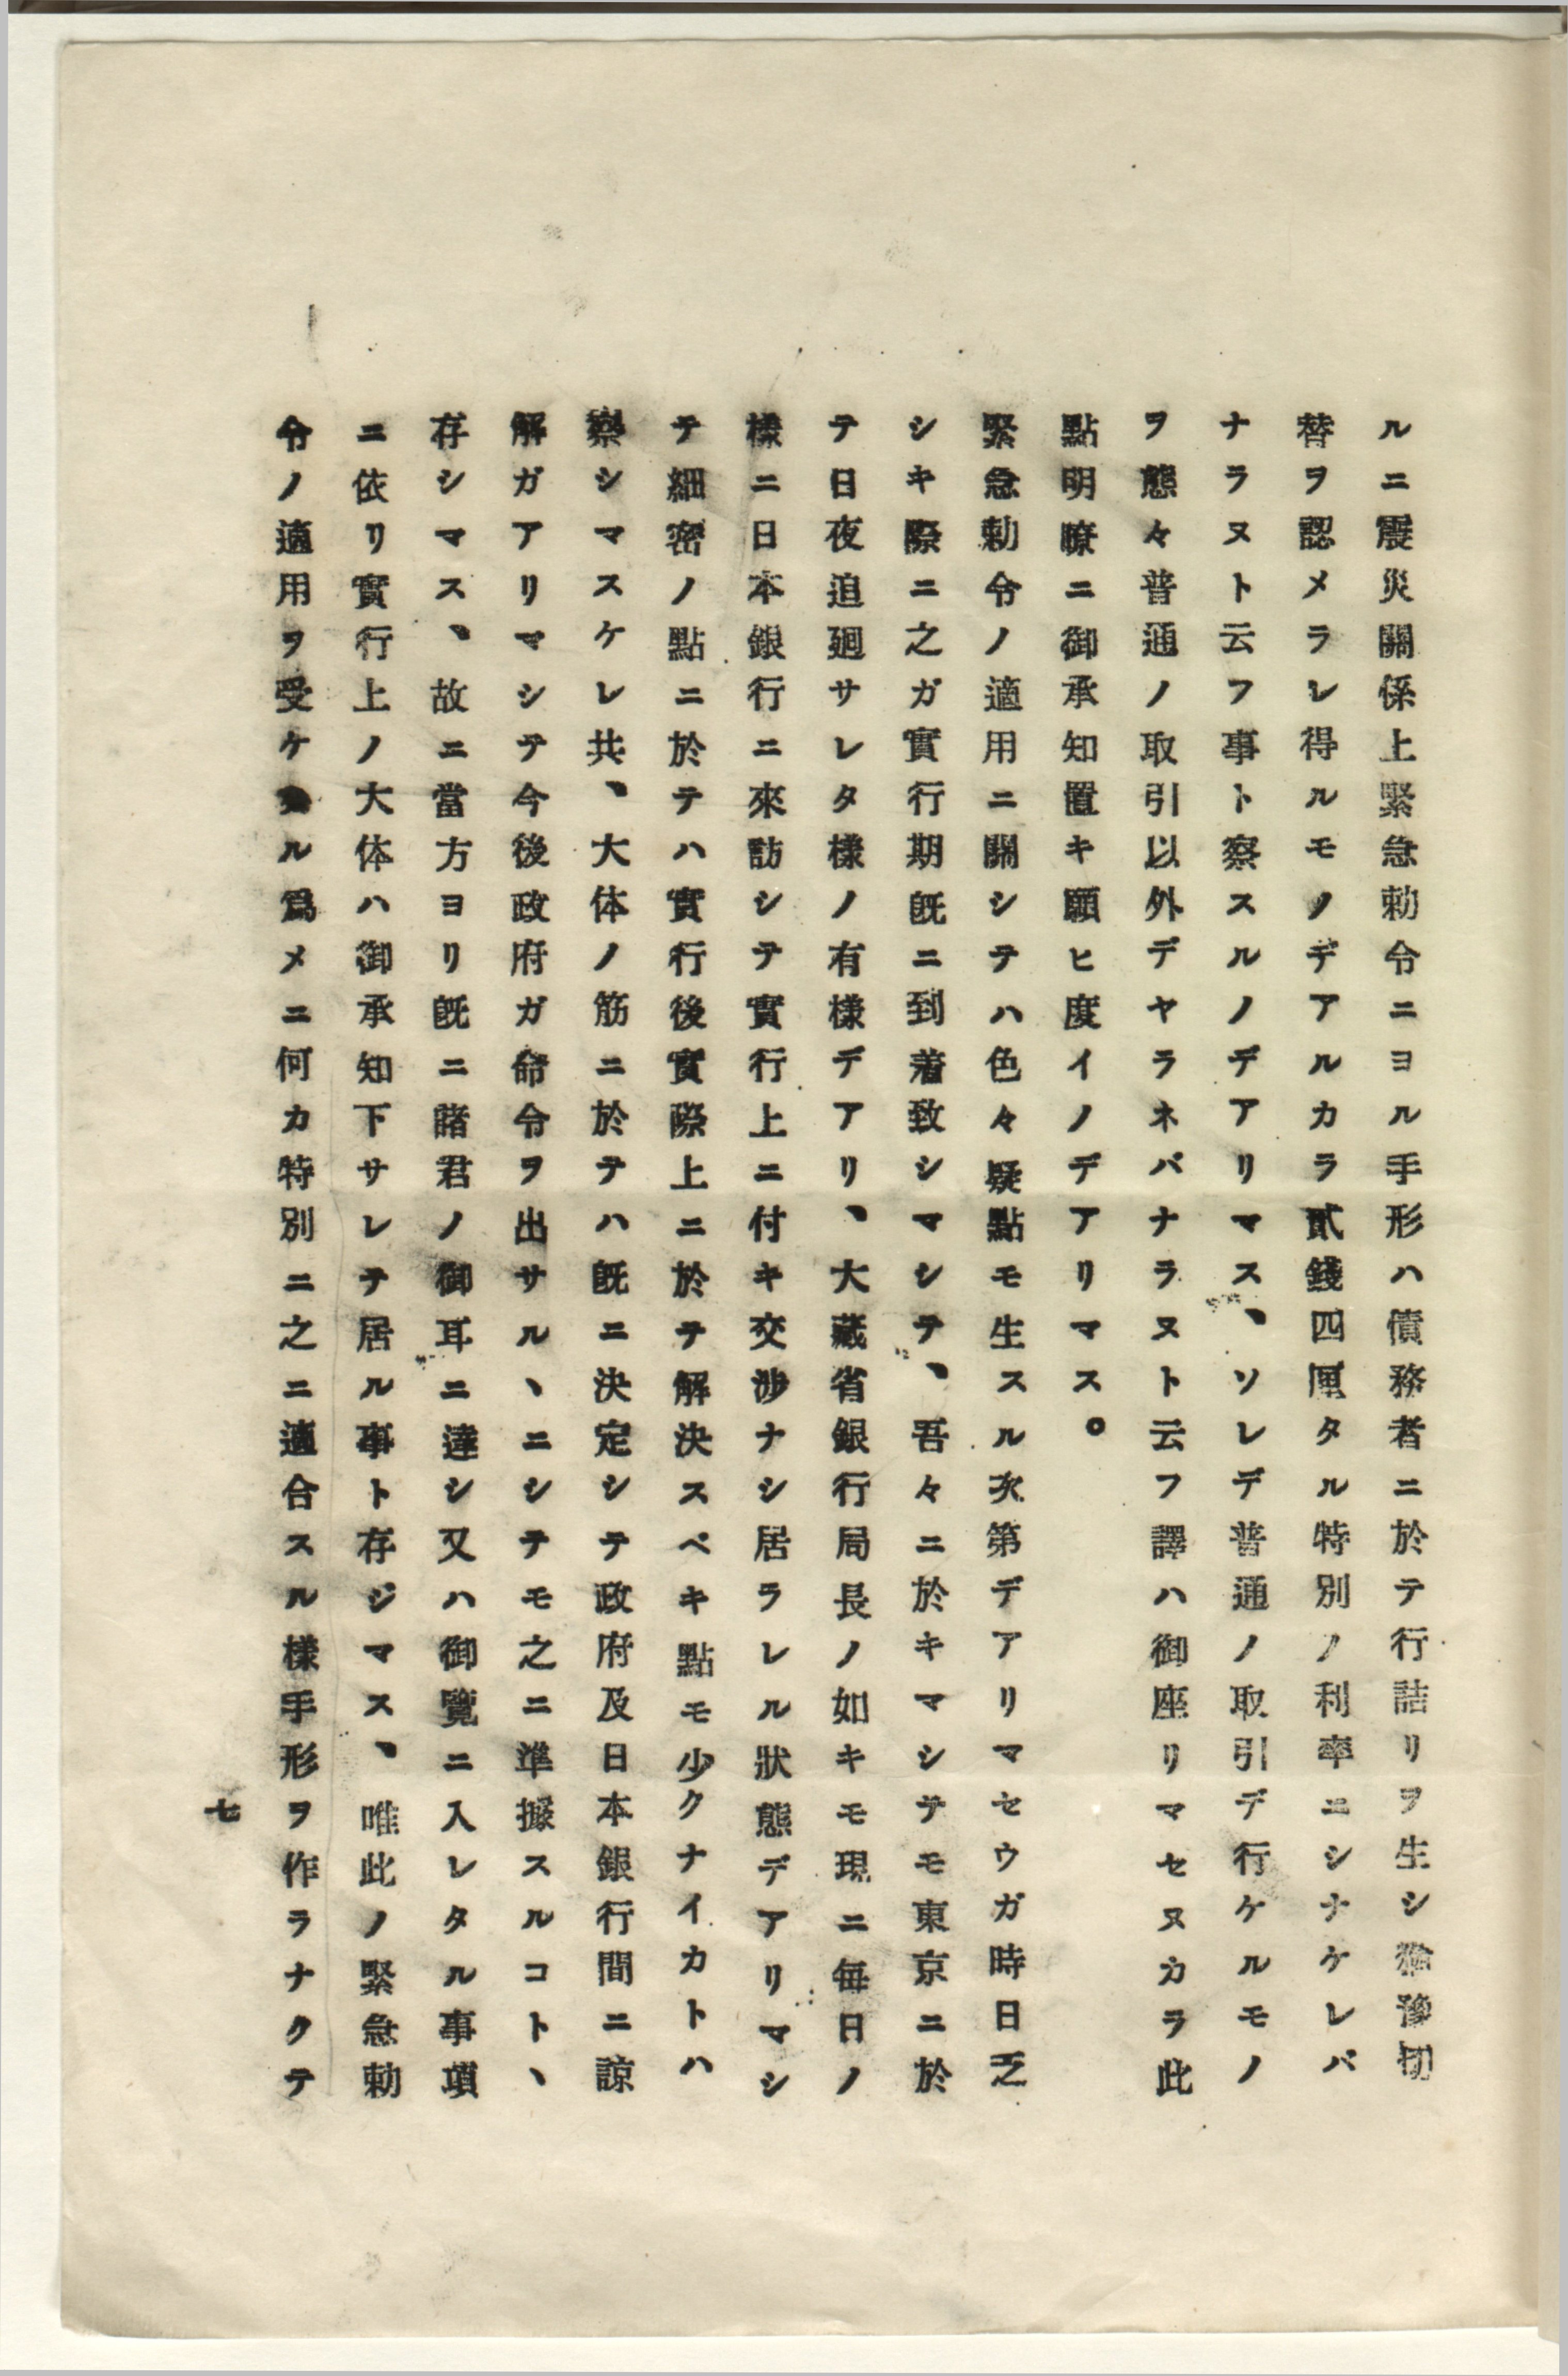 ルニ震災關係上緊急勅令ニヨル手形ハ債務者ニ於テ行詰リヲ生シ猶豫切
替ヲ認メラレ得ルモノデアルカラ貳錢四厘タル特別ノ利率ニシナケレバ
ナラヌト云フ事ト察スルノデアリマス、ソレデ普通ノ取引デ行ケルモノ
ヲ態々普通ノ取引以外デヤラネバナラヌト云フ譯ハ御座リマセヌカラ此
點明瞭ニ御承知置キ願ヒ度イノデアリマス。
緊急勅令ノ適用ニ關シテハ色々疑點モ生スル次第デアリマセウガ時日乏
シキ際ニ之ガ實行期既ニ到着致シマシテ、吾々ニ於キマシテモ東京ニ於
テ日夜追廻サレタ樣ノ有樣デアリ、大藏省銀行局長ノ如キモ現ニ毎日ノ
樣ニ日本銀行ニ來訪シテ實行上ニ付キ交渉ナシ居ラレル狀態デアリマシ
テ細密ノ點ニ於テハ實行後實際上ニ於テ解決スベキ點モ少クナイカトハ
察シマスケレ共、大体ノ筋ニ於テハ既ニ決定シテ政府及日本銀行間ニ諒
解ガアリマシテ今後政府ガ命令ヲ出サル、ニシテモ之ニ準據スルコト、
存シマス、故ニ當方ヨリ既ニ諸君ノ御耳ニ達シ又ハ御覽ニ入レタル事項
ニ依リ實行上ノ大体ハ御承知下サレテ居ル事ト存ジマス、唯此ノ緊急勅
令ノ適用ヲ受ケ ル爲メニ何カ特別ニ之ニ適合スル樣手形ヲ作ラナクテ
七